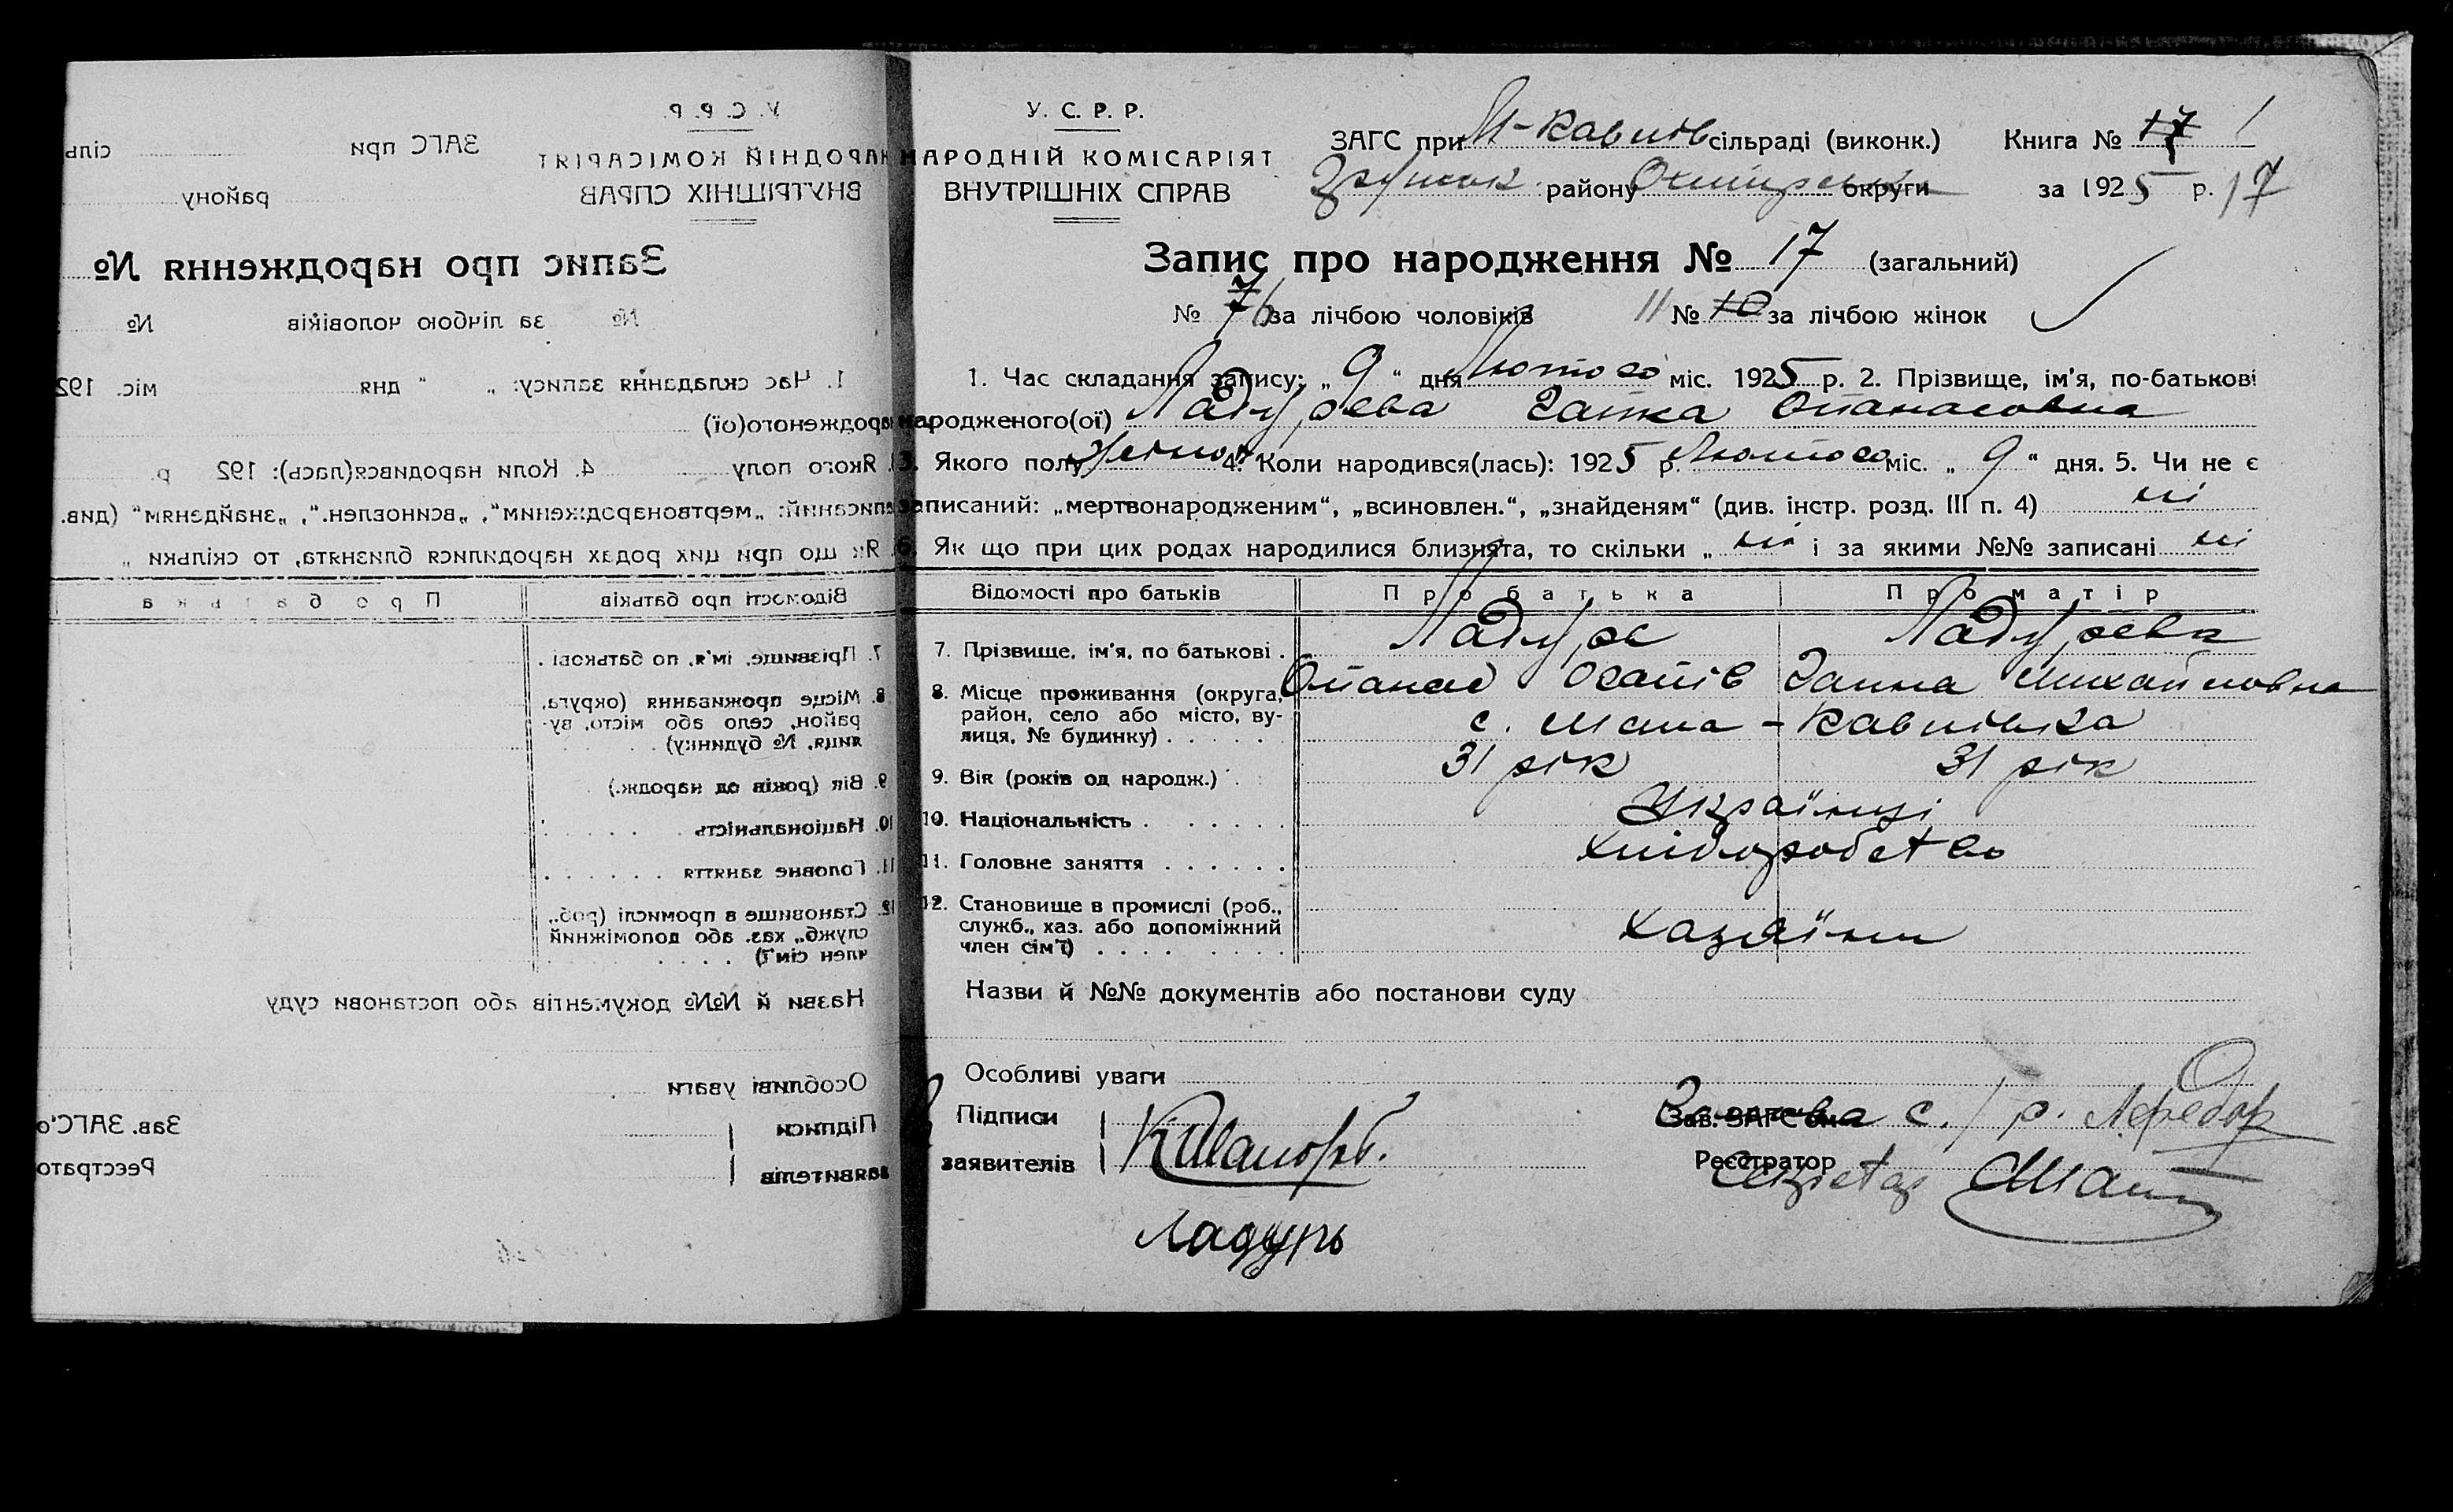 У. С. Р. Р.
НАРОДНІЙ КОМІСАРІЯТ
ВНУТРІШНІХ СПРАВ
ЗАГС при М-Павлів сільраді (виконк.) Книга № 17 1
Грунськ району Охтирська округи за 1925 р. 17
Запис про народження № 17 (загальний)
№ 7 6 за лічбою чоловіків 11 № 10 за лічбою жінок
1. Час складання запису: „ 9 “ дня Лютого міс. 1925 р. 2. Прізвище, ім'я, по-батькові
народженого(ої) Ладурева Гапка Опанасовна
3. Якого полу жіноч 4. Коли народився(лась): 1925 р. Лютого міс. „ 9 “ дня. 5. Чи не є
записаний: „мертвонародженим“, „всиновлен.“, „знайденям“ (див. інстр. розд. III п. 4) ні
6. Як що при цих родах народилися близнята, то скільки „ ні і за якими №№ записані ні
Відомості про батьків Про батька Про матір
7. Прізвище, ім'я, по батькові . Ладурь Ладурева
Опанас Осапів Ганна Михайловна
8. Місце проживання (округа, район, село або місто, ву-
лиця, № будинку) . . . . . с. Мала - Павлівка
9. Вік (років од народж.) . 31 рік 31 рік
10. Національність . . . . . . Українці
11. Головне заняття . . . . . . Хліборобство
12. Становище в промислі (роб.,
служб., хаз. або допоміжний
член сім'ї) . . . . . . . . Хазяїни
Назви й №№ документів або постанови суду
Особливі уваги
Підписи Зав. ЗАГС'ом Голова с/р.
заявителів Реєстратор
Секретар
Ладурь